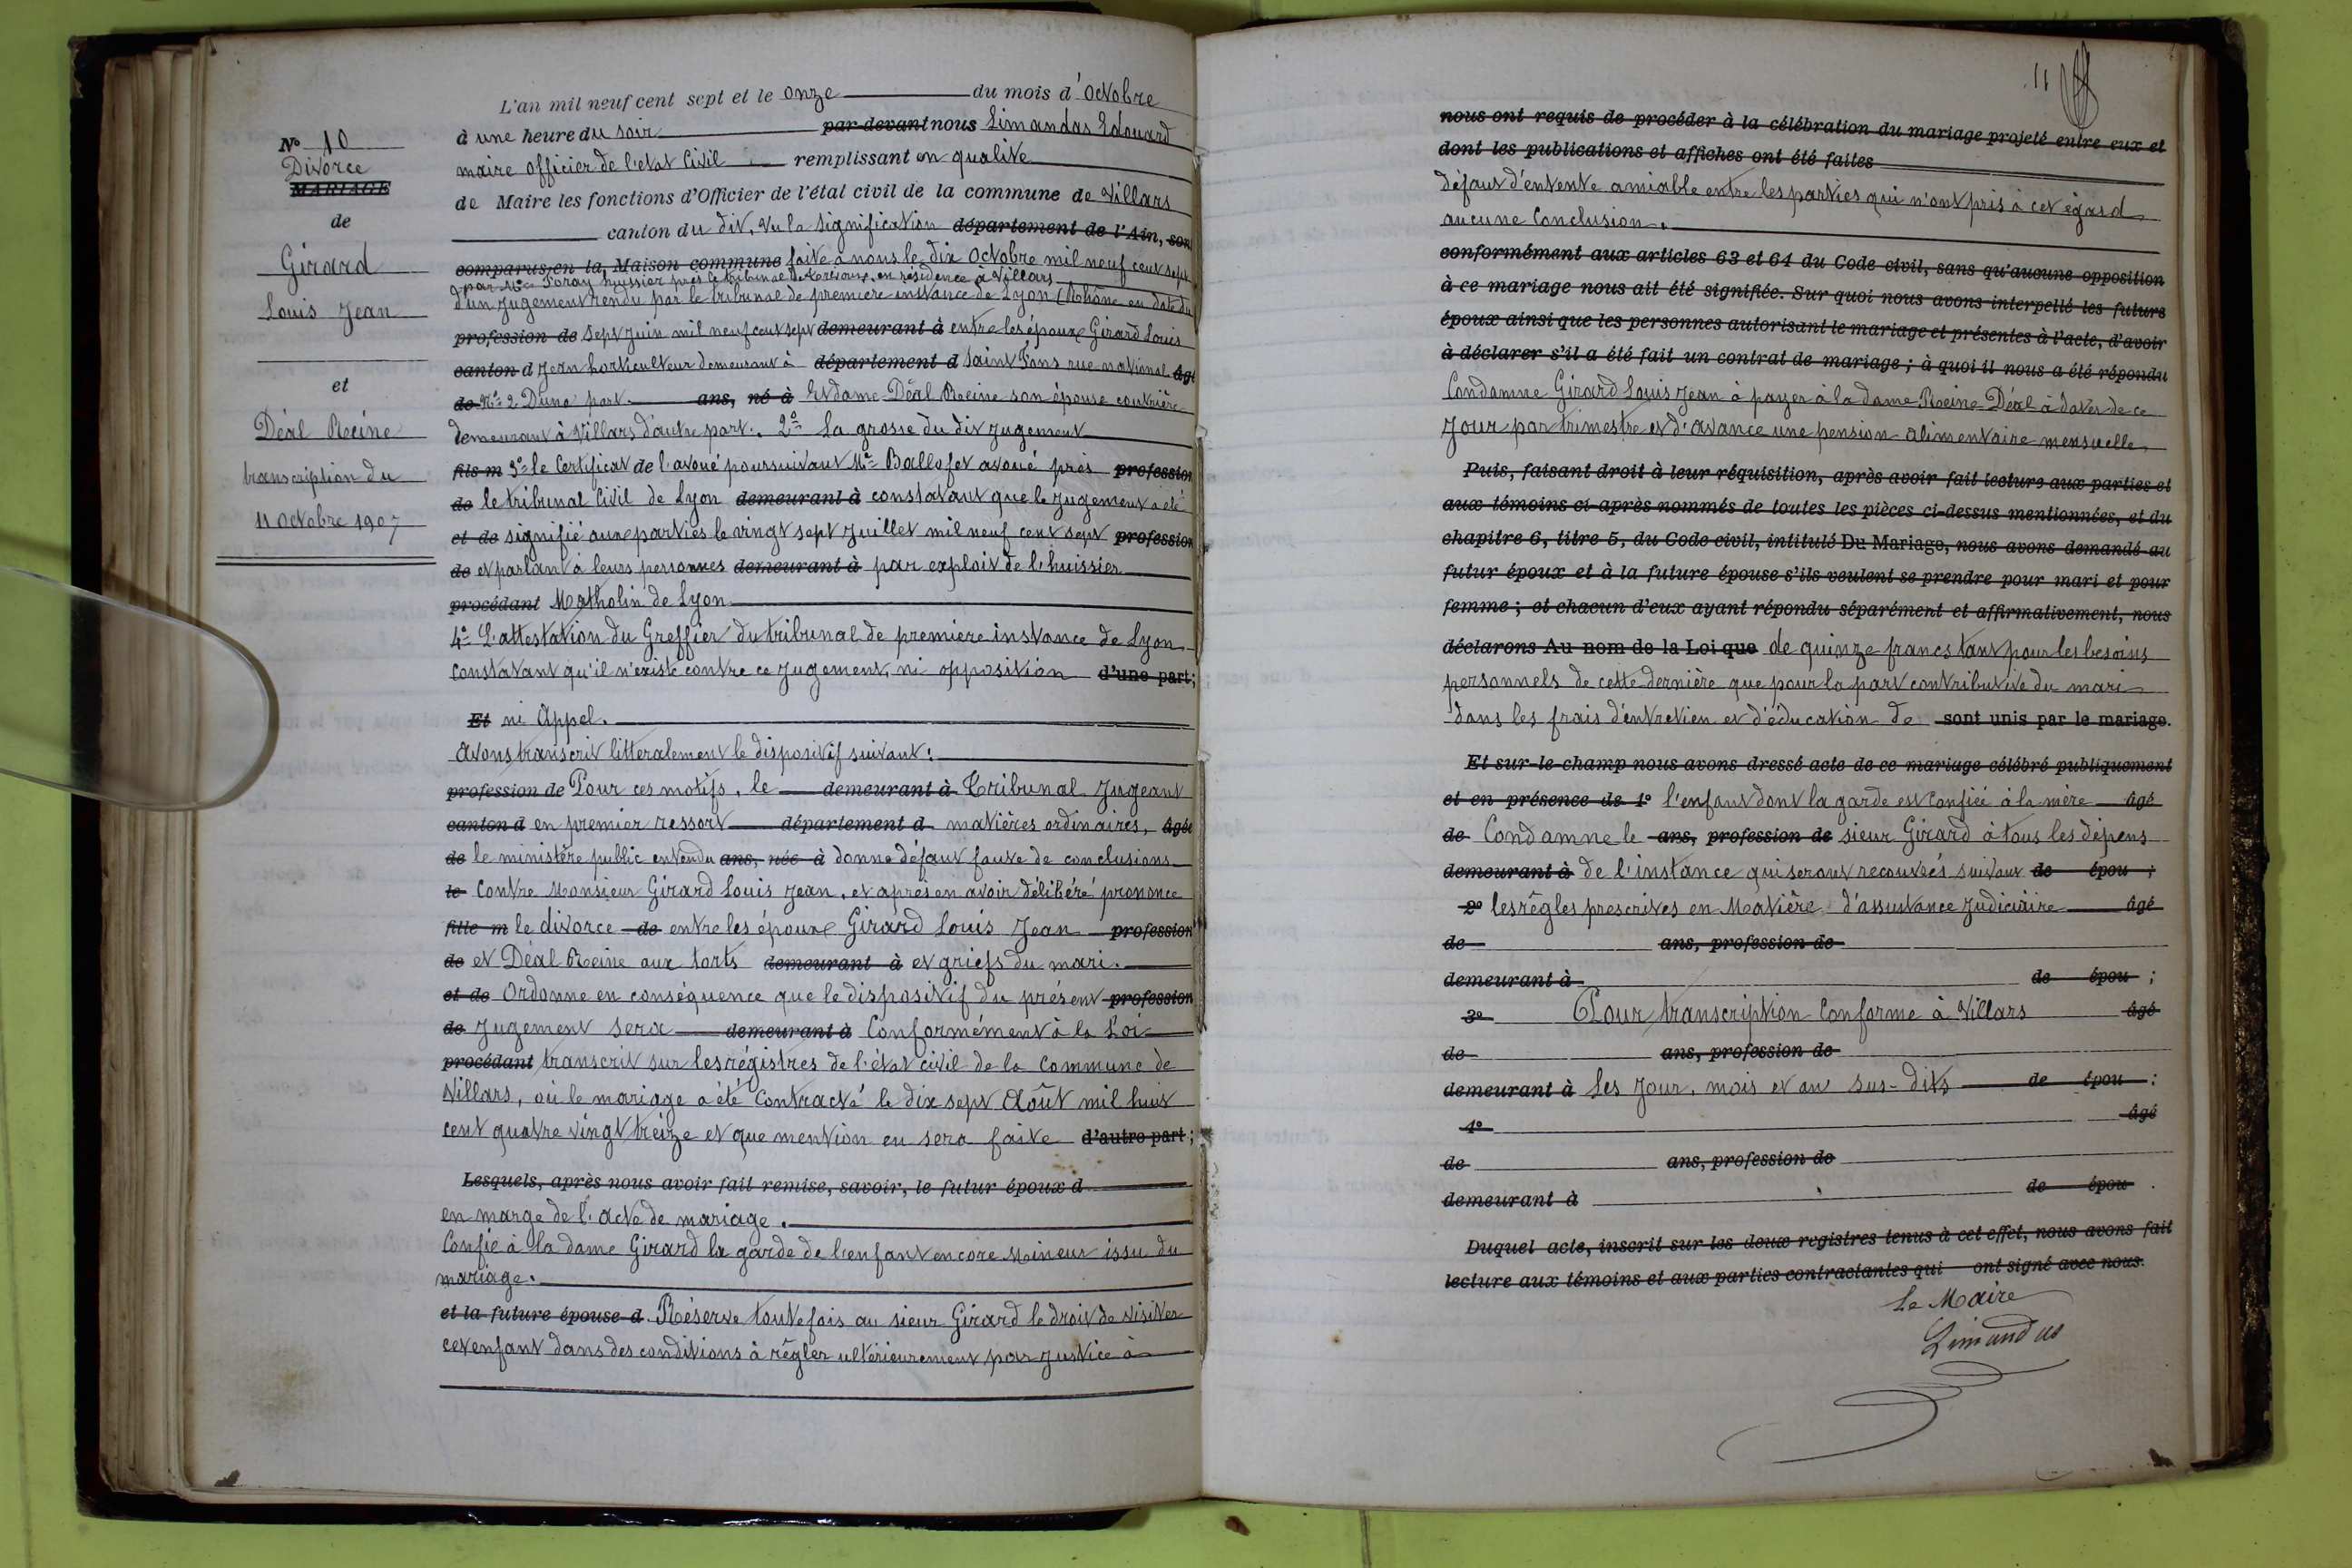 Nº 10
Divorce
MARIAGE
de
Girard
Louis Jean
et
Déal Reine
transcription du
11 Octobre 1907
L'an mil neuf cent sept et le onze du mois d'Octobre
à une heure du soir par-devant nous Limandas Edouard
maire officier de l'etat Civil remplissant en qualite
de Maire les fonctions d'Officier de l'état civil de la commune de Villars
canton du dit, Vu la signification département de l'Ain, sont
comparus, en la Maison commune faite à nous le dix Octobre mil neuf cent sept
par Me Foray huissier près le tribunal de Trévoux, en résidence à Villars
d'un Jugement rendu par le tribunal de premiere instance de Lyon (Rhône en date du
profession de sept Juin mil neuf cent sept demeurant à entre les époux Girard Louis
canton d Jean horticulteur demeurant à département d Saint Fons rue national âgé
de Nº 2 D'une part. ans, né à Et dame Déal Reine son épouse couturière
demeurant à Villars d'autre part. 2º La grosse du dit Jugement
fils m 3º le Certificat de l'avoué poursuivant Me Ballofet avoué près profession
de le tribunal Civil de Lyon demeurant à constatant que le Jugement a été
et de signifié aux parties le vingt sept Juillet mil neuf cent sept profession
de et parlant à leurs personnes demeurant à par exploit de l'huissier
procédant Matholin de Lyon
4º L'attestation du Greffier du tribunal de premiere instance de Lyon
Constatant qu'il n'existe contre ce Jugement, ni opposition d'une part;
Et ni Appel.
Avons transcrit litteralement le dispositif suivant:
profession de Pour ces motifs, le demeurant à Tribunal Jugeant
canton d en premier ressort département d matières ordinaires, âgée
de le ministère public entendu ans, née à donne défaut faute de conclusions
le Contre Monsieur Girard Louis Jean, et après en avoir délibéré prononce
fille m le divorce de entre les époux Girard Louis Jean profession
de et Déal Reine aux torts demeurant à et griefs du mari.
et de Ordonne en conséquence que le dispositif du présent profession
de Jugement sera demeurant à Conformément à la Loi
procédant transcrit sur les régistres de l'état civil de la Commune de
Villars, où le mariage a été Contracté le dix sept Août mil huit
cent quatre vingt treize et que mention en sera faite d'autre part;
Lesquels, après nous avoir fait remise, savoir, le futur époux d
en marge de l'Acte de mariage.
Confie à la dame Girard la garde de l'enfant encore Mineur issu du
mariage.
et la future épouse d Réserve toutefois au sieur Girard le droit de visiter
cet enfant dans des conditions à règler ultérieurement par Justice à
11
nous ont requis de procéder à la célébration du mariage projeté entre eux et
dont les publications et affiches ont été faites
défaut d'entente amiable entre les parties qui n'ont pris à cet égard
aucune Conclusion.
conformément aux articles 63 et 64 du Code civil, sans qu'aucune opposition
à ce mariage nous ait été signifiée. Sur quoi nous avons interpellé les futurs
époux ainsi que les personnes autorisant le mariage et présentes à l'acte, d'avoir
à déclarer s'il a été fait un contrat de mariage; à quoi il nous a été répondu
Condamne Girard Louis Jean à payer à la dame Reine Déal à dater de ce
Jour par trimestre et d'avance une pension alimentaire mensuelle
Puis, faisant droit à leur réquisition, après avoir fait lecture aux parties et
aux témoins ci-après nommés de toutes les pièces ci-dessus mentionnées, et du
chapitre 6, titre 5, du Code civil, intitulé Du Mariage, nous avons demandé au
futur époux et à la future épouse s'ils veulent se prendre pour mari et pour
femme; et chacun d'eux ayant répondu séparément et affirmativement, nous
déclarons Au nom de la Loi que de quinze francs tant pour les besoins
personnels de cette dernière que pour la part contributive du mari
dans les frais d'entretien et d'éducation de sont unis par le mariage.
Et sur-le-champ nous avons dressé acte de ce mariage célébré publiquement
et en présence de 1º l'enfant dont la garde est Confiée à la mère âgé
de Condamne le ans, profession de sieur Girard à tous les dépens
demeurant à de l'instance qui seront recouvrés suivant de épou ;
2º les règles prescrites en Matière d'assistance Judiciaire âgé
de ans, profession de
demeurant à de épou ;
3º Pour transcription Conforme à Villars âgé
de ans, profession de
demeurant à Les Jour, mois et an sus-dits de épou ;
4º âgé
de ans, profession de
demeurant à de épou .
Duquel acte, inscrit sur les deux registres tenus à cet effet, nous avons fait
lecture aux témoins et aux parties contractantes qui ont signé avec nous.
Le Maire
Limandas